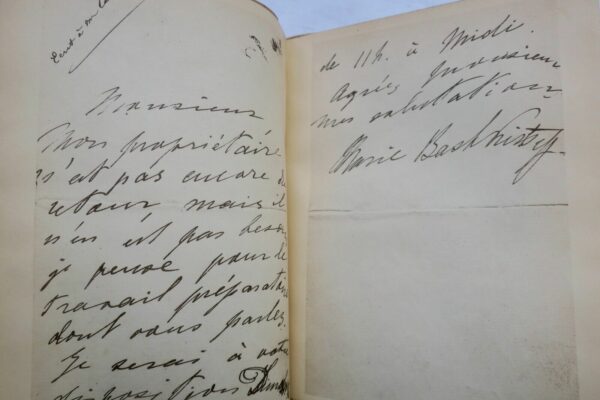 Ecrit à son
Monsieur
Mon propriétaire
n'est pas encore de
retour mais il
n'en est pas besoin
je pense pour le
travail préparatoire
dont vous parlez.
Je serai à votre
disposition Dim
de 11h. à Midi.
Agréez Monsieur
mes salutations
Marie Bashkirtseff